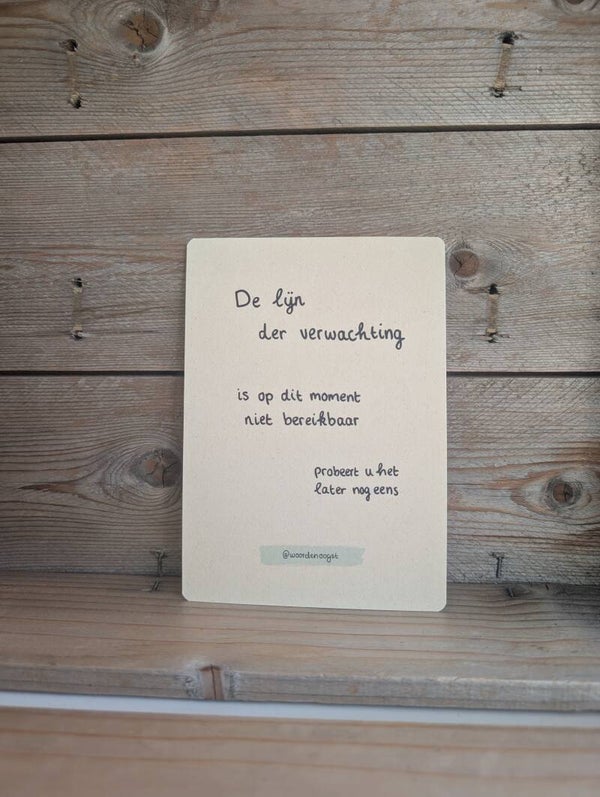 De lijn
der verwachting
is op dit moment
niet bereikbaar
probeert u het
later nog eens
@woordenoogst